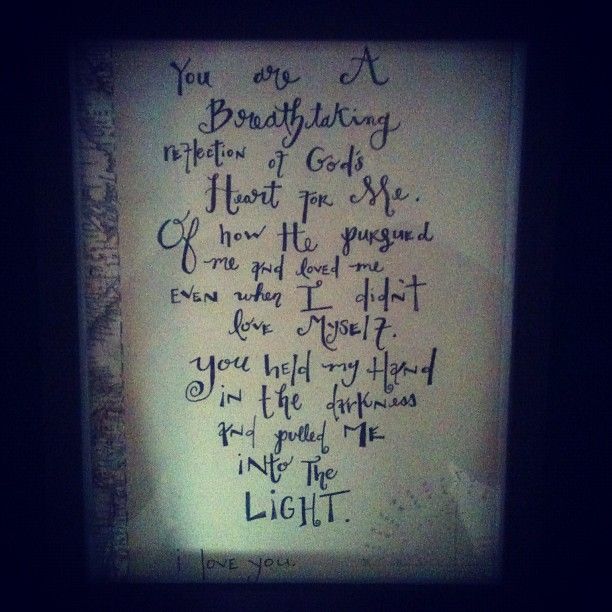 You are A
Breathtaking
reflection of God's
Heart for Me.
Of how He pursued
me and loved me
EVEN when I didn't
love MYSELF.
You held my Hand
iN the darkness
and pulled ME
iNto The
LiGHT.
i love you.